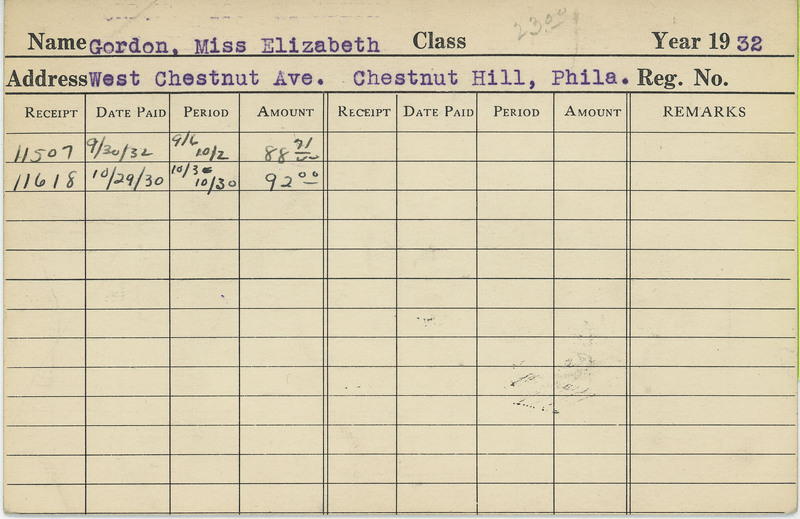 Name Gordon, Miss Elizabeth Class 23 00 Year 19 32
Address West Chestnut Ave. Chestnut Hill, Phila. Reg. No.
RECEIPT DATE PAID PERIOD AMOUNT RECEIPT DATE PAID PERIOD AMOUNT REMARKS
11507 9/30/32 9/6 10/2 88
11618 10/29/30 10/3 10/30 92 00